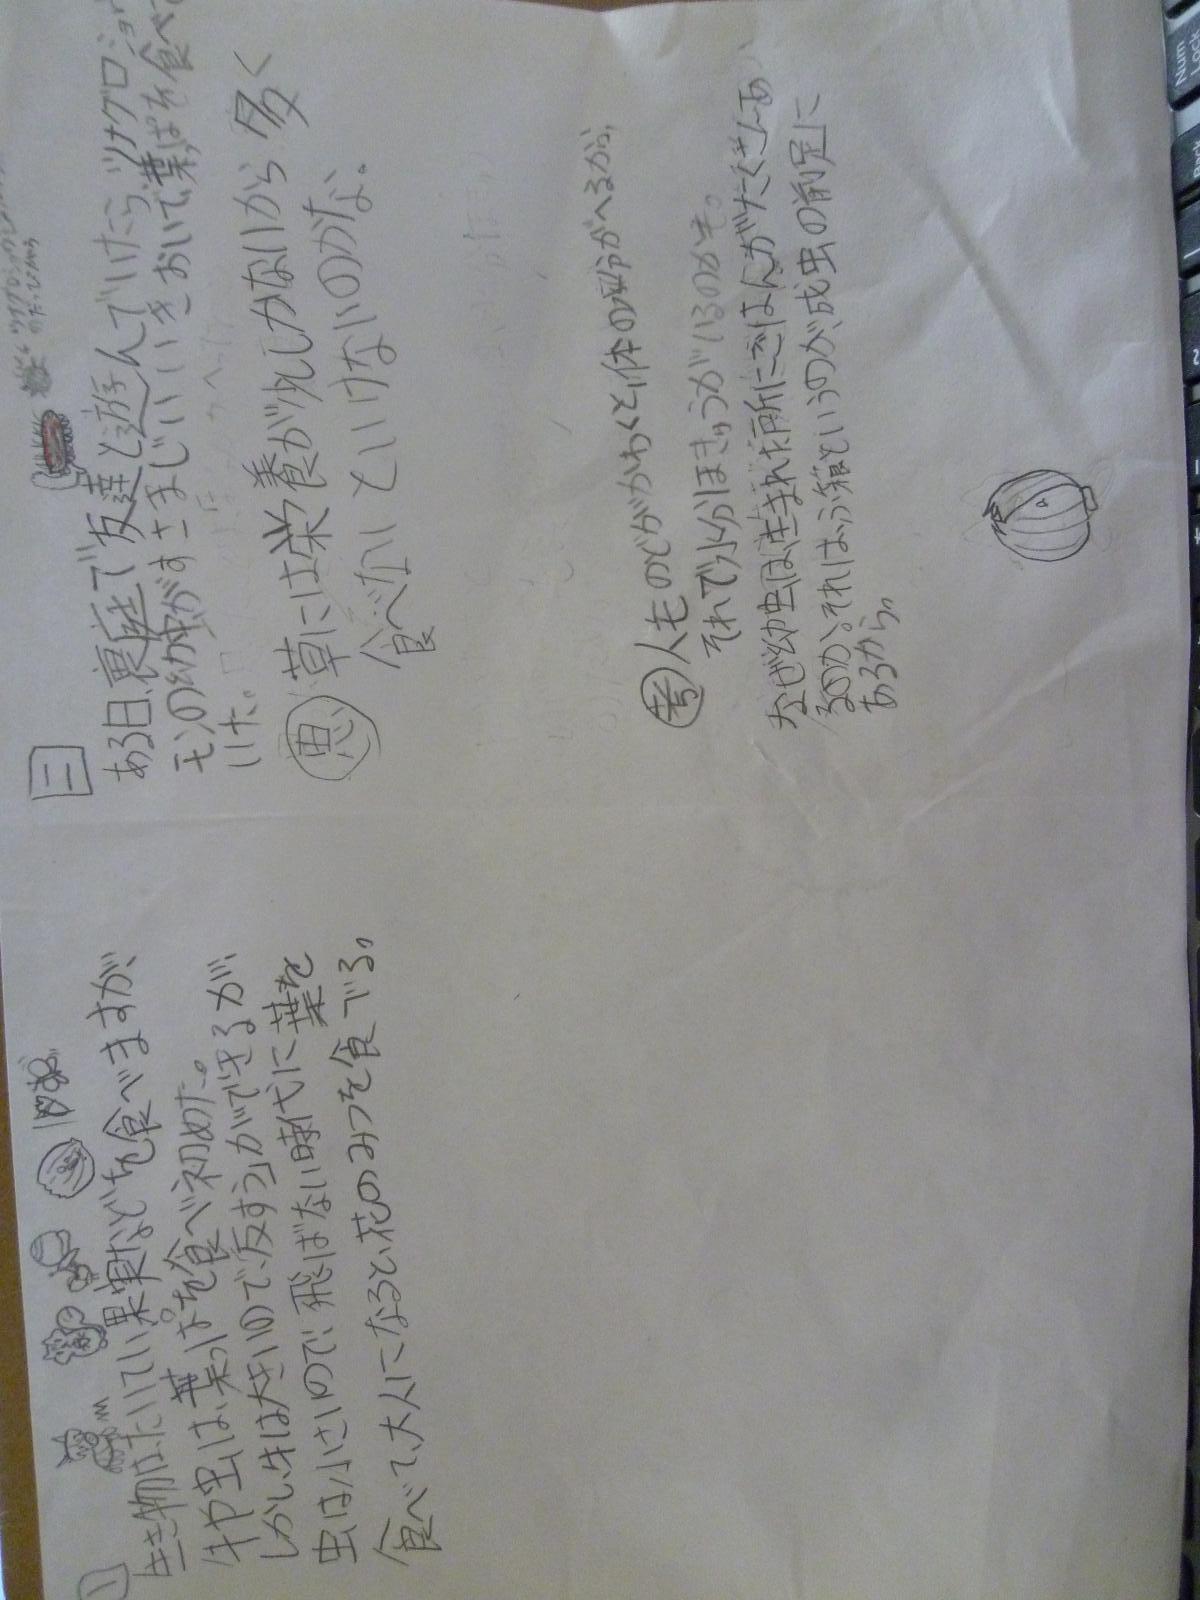 一
生き物はたいてい果実などを食べますが、
牛や虫は、葉っぱを食べ初めた。
しかし牛は大きいので「反すう」ができるが、
虫は小さいので、飛ばない時代に葉を
食べて、大人になると、花のみつを食でる。
二
ある日、裏庭で友達と遊んでいたらツマグロヒョウ
モンの幼虫がすさまじいいきおいで葉っぱを食べて
いた。
思 草には栄養が少ししかないから多く
食べないといけないのかな。
考 人ものどがかわくと、体の水分がへるから、
それで水分ほきゅうがいるのかも。
なぜ幼虫は、生まれた所にごはんがたくさんあ
るのか。それは、ふ箱というのが、成虫の前足に
あるから。
Num
Lock